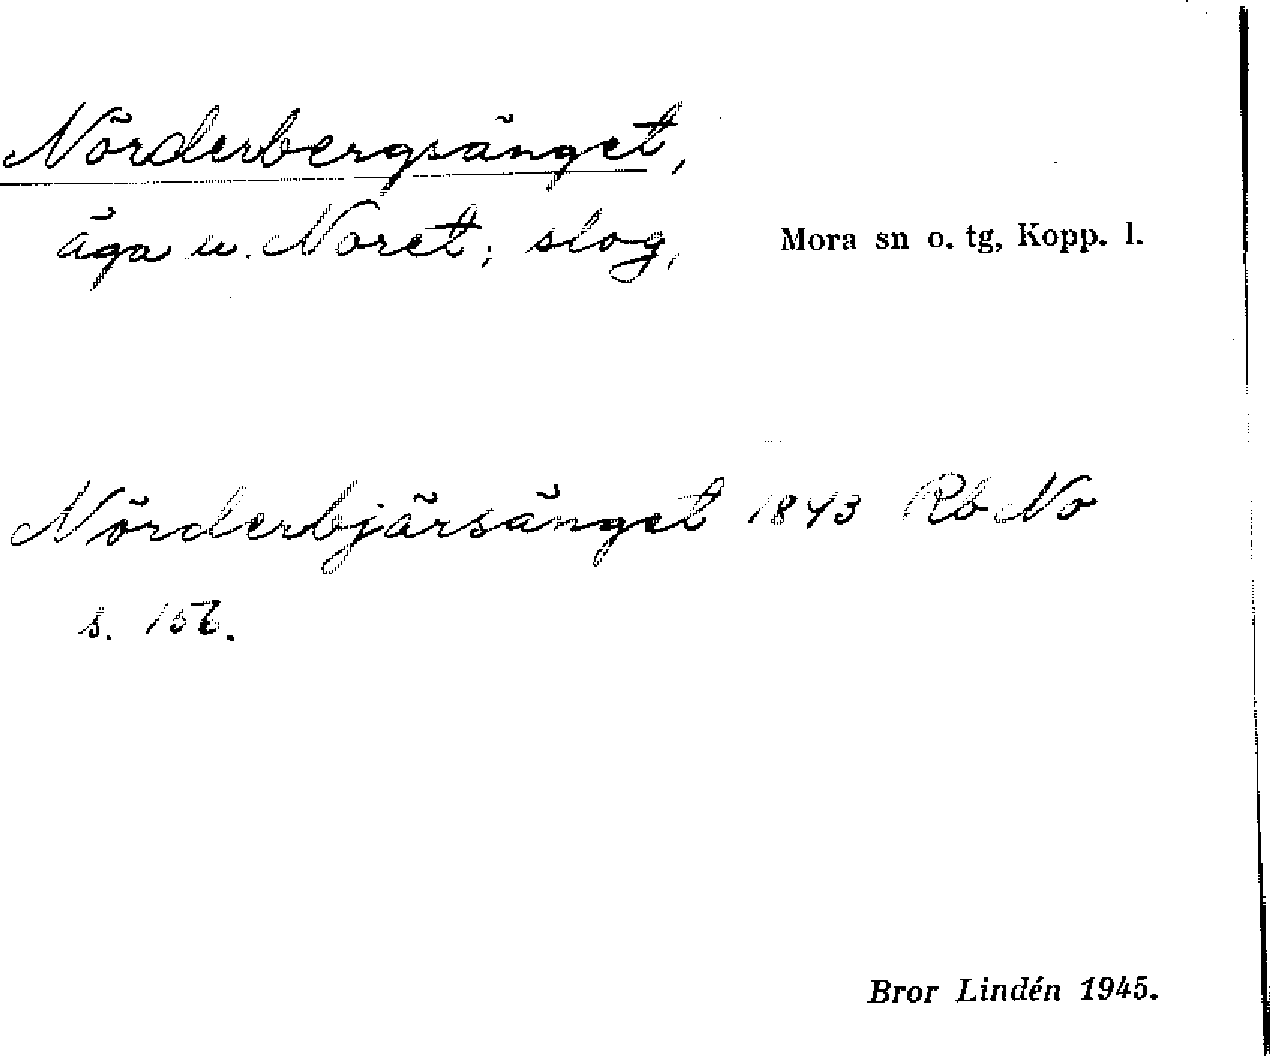 Nörderbergsänget,
äga u. Noret; slog,
Mora sn o. tg, Kopp. l.
Nörderbjärsänget 1843 Rb No
s. 156.
Bror Lindén 1945.